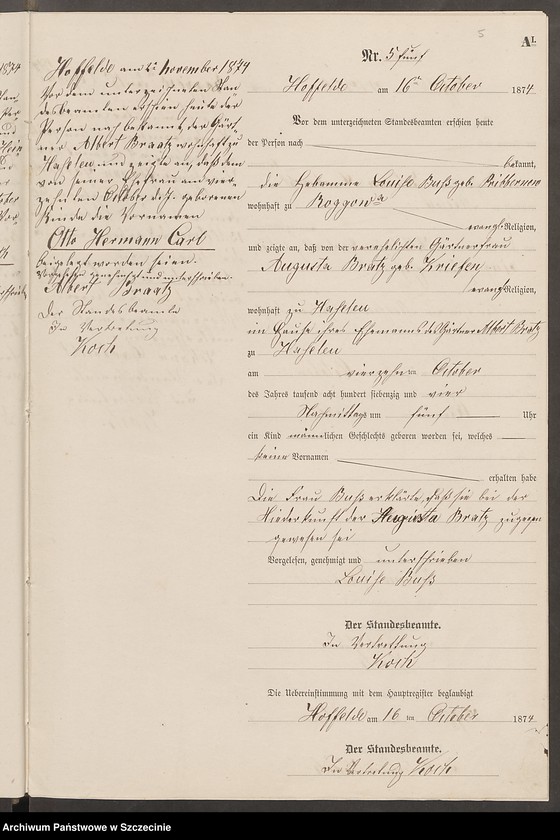 5
A1.
Nr. 5 fünf
Hoffelde am 16ten October 1874
Vor dem unterzeichneten Standesbeamten erschien heute
der Person nach
bekannt,
die Hebamme Louise Buß geb.
wohnhaft zu Roggow
evangl. Religion,
und zeigte an, daß von der verehelichten Gärtnerfrau
Augusta Bratz geb. Kriesen
evangl. Religion,
wohnhaft zu Haseleu
im Hause ihres Ehemanns des Gärtner Albert Bratz
zu Haseleu
am vierzehn ten October
des Jahres tausend acht hundert siebenzig und vier
Nachmittags um fünf Uhr
ein Kind männlichen Geschlechts geboren worden sei, welches
keine Vornamen
erhalten habe
Die Frau Buß erklärte, daß sie bei der
Niederkunft der Augusta Bratz zugegen
gewesen sei
Vorgelesen, genehmigt und unterschrieben
Louise Buß
Der Standesbeamte.
In Vertretung
Koch
Die Uebereinstimmung mit dem Hauptregister beglaubigt
Hoffelde am 16 ten October 1874
Der Standesbeamte.
In Vertretung Koch
Hoffelde am November 1874
Vor dem unterzeichneten Stan-
desbeamten erschien heute der
Person nach bekannt, der Gärt-
ner Albert Braatz wohnhaft zu
Haseleu und zeigte an, daß dem
von seiner Ehefrau am vier-
zehnten October d. J. geborenen
Kinde die Vornamen
Otto Hermann Carl
beigelegt worden seien.
Vorgelesen genehmigt und unterschrieben.
Albert Braatz
Der Standesbeamte
In Vertretung
Koch
Archiwum Państwowe w Szczecinie